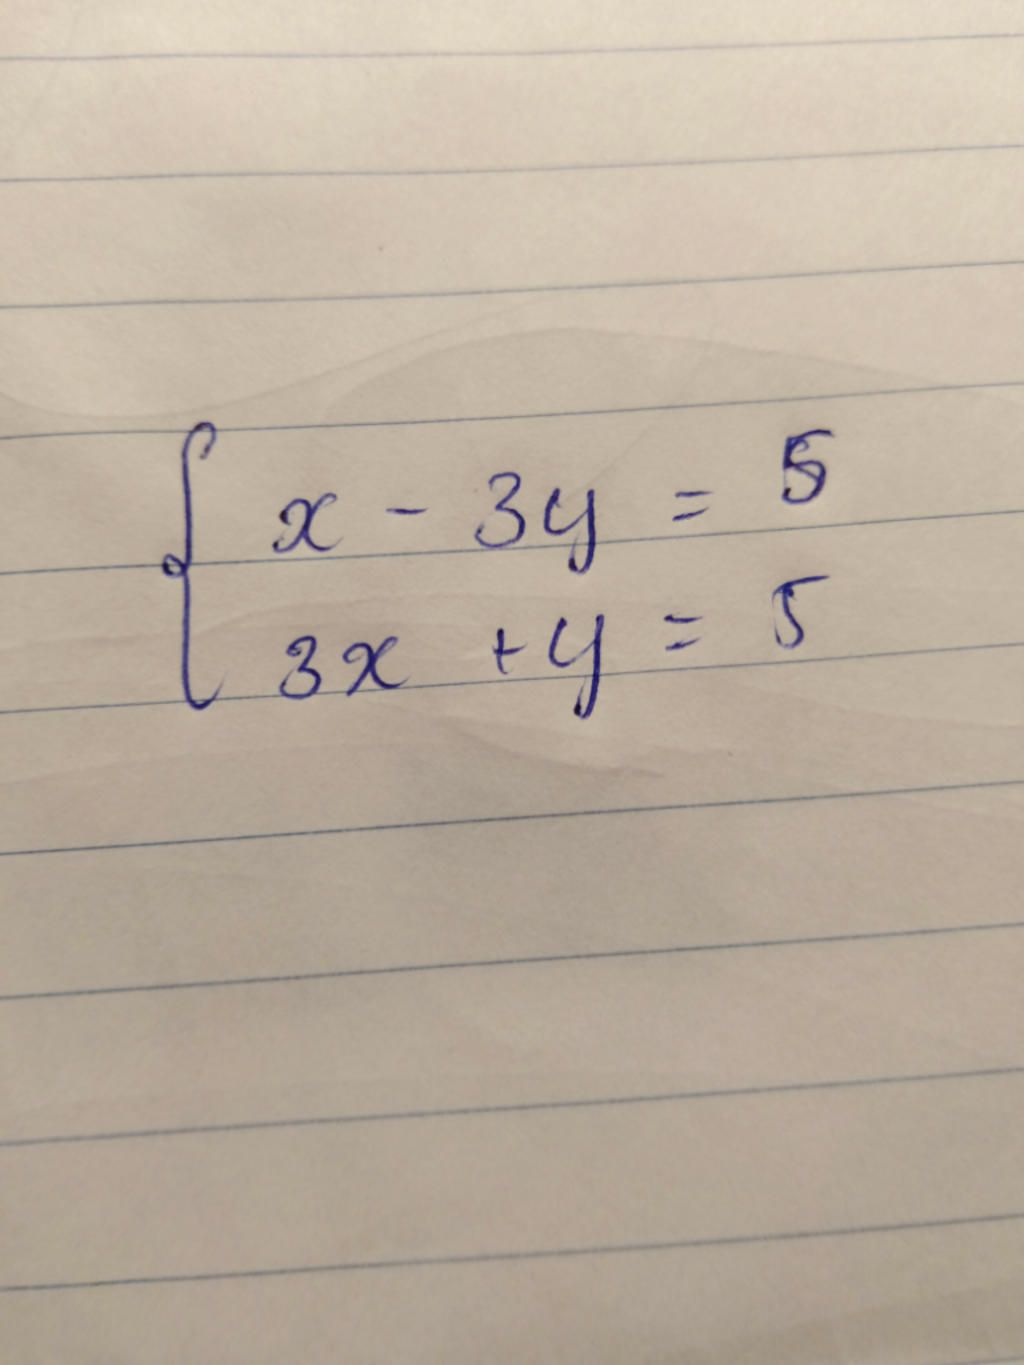 x - 3y = 5
3x + y = 5